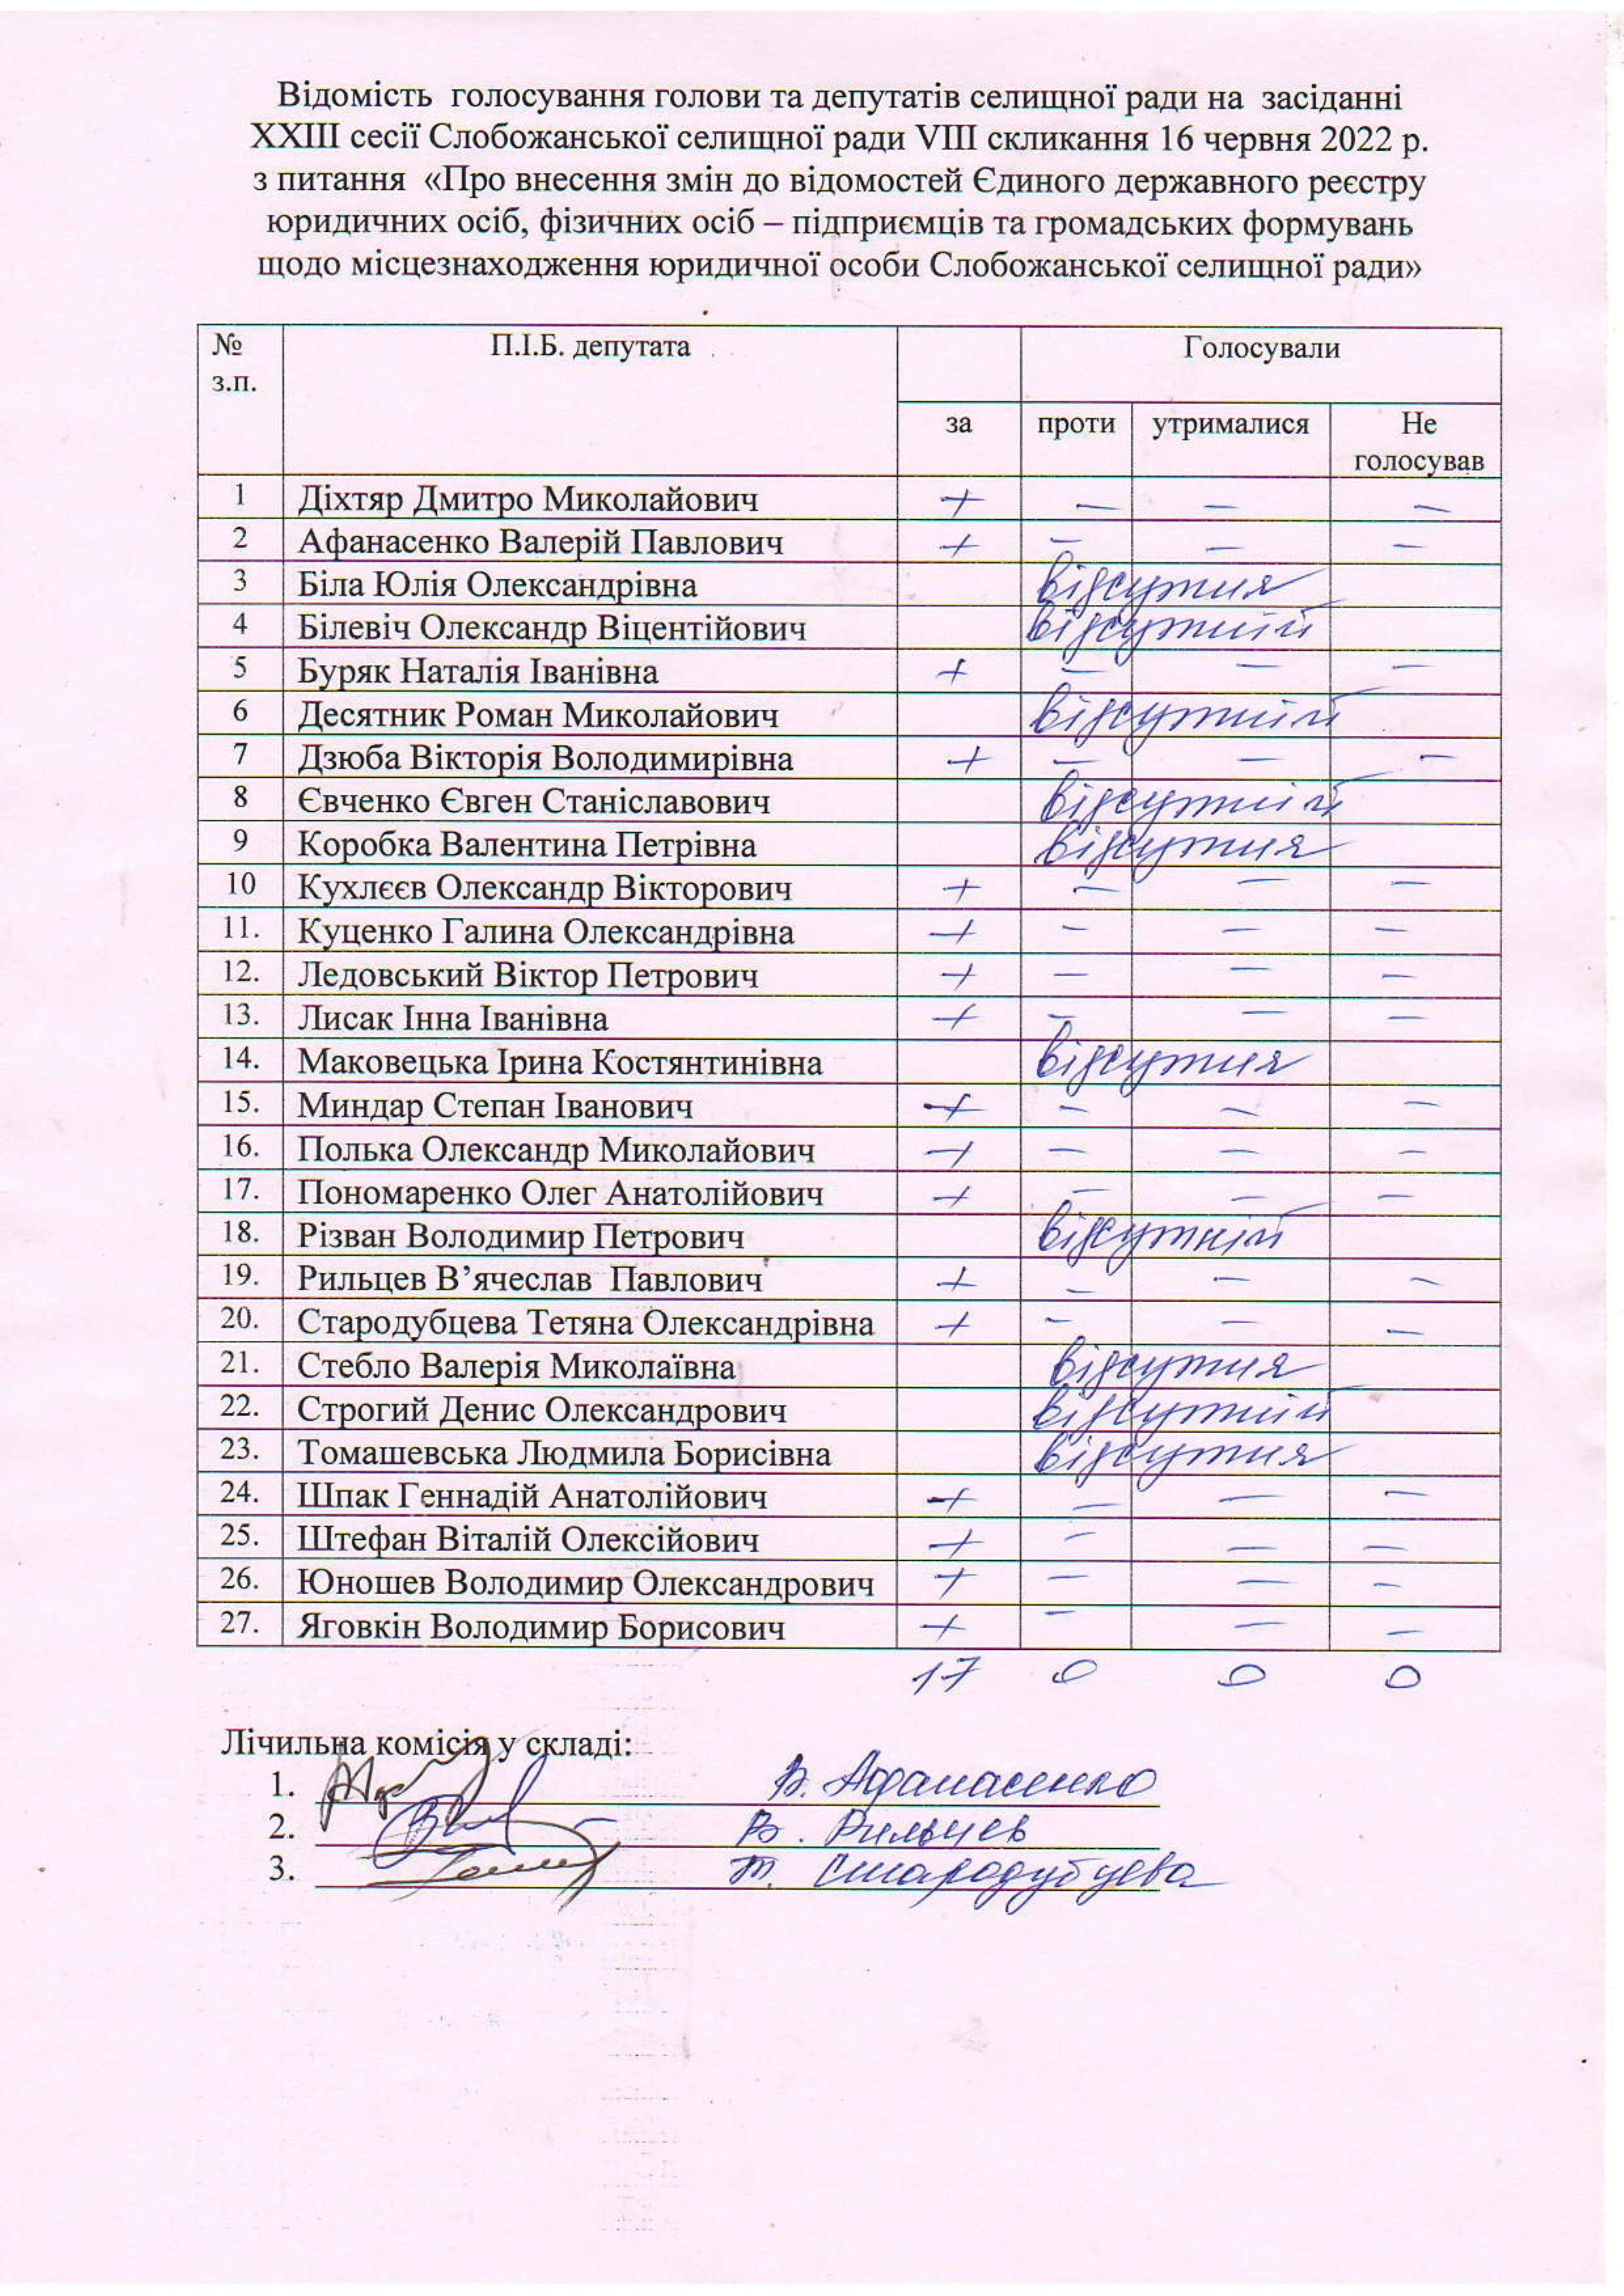 Відомість голосування голови та депутатів селищної ради на засіданні
XXIII сесії Слобожанської селищної ради VIII скликання 16 червня 2022 р.
з питання «Про внесення змін до відомостей Єдиного державного реєстру
юридичних осіб, фізичних осіб – підприємців та громадських формувань
щодо місцезнаходження юридичної особи Слобожанської селищної ради»
№ з.п. П.І.Б. депутата Голосували
за проти утрималися Не голосував
1 Діхтяр Дмитро Миколайович + — — —
2 Афанасенко Валерій Павлович + — — —
3 Біла Юлія Олександрівна відсутня
4 Білевіч Олександр Віцентійович відсутній
5 Буряк Наталія Іванівна + — — —
6 Десятник Роман Миколайович відсутній
7 Дзюба Вікторія Володимирівна + — — —
8 Євченко Євген Станіславович відсутній
9 Коробка Валентина Петрівна відсутня
10 Кухлєєв Олександр Вікторович + — — —
11. Куценко Галина Олександрівна + — — —
12. Ледовський Віктор Петрович + — — —
13. Лисак Інна Іванівна + — — —
14. Маковецька Ірина Костянтинівна відсутня
15. Миндар Степан Іванович + — — —
16. Полька Олександр Миколайович + — — —
17. Пономаренко Олег Анатолійович + — — —
18. Різван Володимир Петрович відсутній
19. Рильцев В’ячеслав Павлович + — — —
20. Стародубцева Тетяна Олександрівна + — — —
21. Стебло Валерія Миколаївна відсутня
22. Строгий Денис Олександрович відсутній
23. Томашевська Людмила Борисівна відсутня
24. Шпак Геннадій Анатолійович + — — —
25. Штефан Віталій Олексійович + — — —
26. Юношев Володимир Олександрович + — — —
27. Яговкін Володимир Борисович + — — —
17 0 0 0
Лічильна комісія у складі:
1. В. Афанасенко
2. В. Рильцев
3. Т. Стародубцева